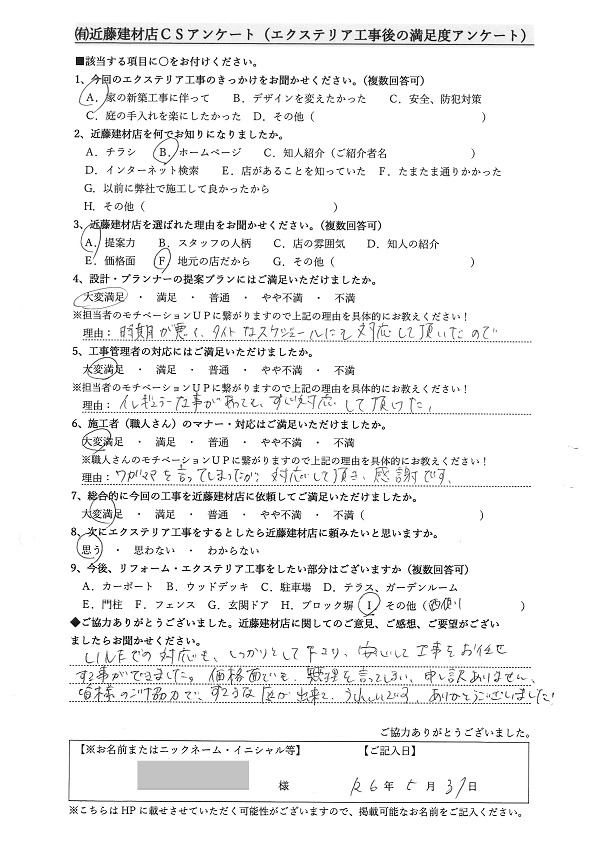 ㈲近藤建材店CSアンケート（エクステリア工事後の満足度アンケート）
■該当する項目に〇をお付けください。
1、今回のエクステリア工事のきっかけをお聞かせください。（複数回答可）
A．家の新築工事に伴って　B．デザインを変えたかった　C．安全、防犯対策
C．庭の手入れを楽にしたかった　D．その他（　　　）
2、近藤建材店を何でお知りになりましたか。
A．チラシ　B．ホームページ　C．知人紹介（ご紹介者名　　　）
D．インターネット検索　E．店があることを知っていた　F．たまたま通りかかった
G．以前に弊社で施工して良かったから
H．その他（　　　）
3、近藤建材店を選ばれた理由をお聞かせください。（複数回答可）
A．提案力　B．スタッフの人柄　C．店の雰囲気　D．知人の紹介
E．価格面　F．地元の店だから　G．その他（　　　）
4、設計・プランナーの提案プランにはご満足いただけましたか。
大変満足　・　満足　・　普通　・　やや不満　・　不満
※担当者のモチベーションUPに繋がりますので上記の理由を具体的にお教えください！
理由：時期が悪く、タイトなスケジュールにも対応して頂いたので
5、工事管理者の対応にはご満足いただけましたか。
大変満足　・　満足　・　普通　・　やや不満　・　不満
※担当者のモチベーションUPに繋がりますので上記の理由を具体的にお教えください！
理由：イレギュラーな事があっても、すぐ対応して頂けた。
6、施工者（職人さん）のマナー・対応はご満足いただけましたか。
大変満足　・　満足　・　普通　・　やや不満　・　不満
※職人さんのモチベーションUPに繋がりますので上記の理由を具体的にお教えください！
理由：ワガママを言ってしまったが、対応して頂き、感謝です、
7、総合的に今回の工事を近藤建材店に依頼してご満足いただけましたか。
大変満足　・　満足　・　普通　・　やや不満　・　不満（　　　）
8、次にエクステリア工事をするとしたら近藤建材店に頼みたいと思いますか。
思う　・　思わない　・　わからない
9、今後、リフォーム・エクステリア工事をしたい部分はございますか（複数回答可）
A．カーポート　B．ウッドデッキ　C．駐車場　D．テラス、ガーデンルーム
E．門柱　F．フェンス　G．玄関ドア　H．ブロック塀　I　その他（西側　）
◆ご協力ありがとうございました。近藤建材店に関してのご意見、ご感想、ご要望がござい
ましたらお聞かせください。
LINEでの対応も、しっかりとして下さり、安心して工事をお任せ
する事ができました。価格面でも、無理を言ってしまい、申し訳ありません、
皆様のご協力で、すてきな庭が出来て、うれしいです、ありがとうございました！
ご協力ありがとうございました。
【※お名前またはニックネーム・イニシャル等】　【ご記入日】
様　R6年5月31日
※こちらはHPに載せさせていただく可能性がございますので、掲載可能なお名前をご記入ください。